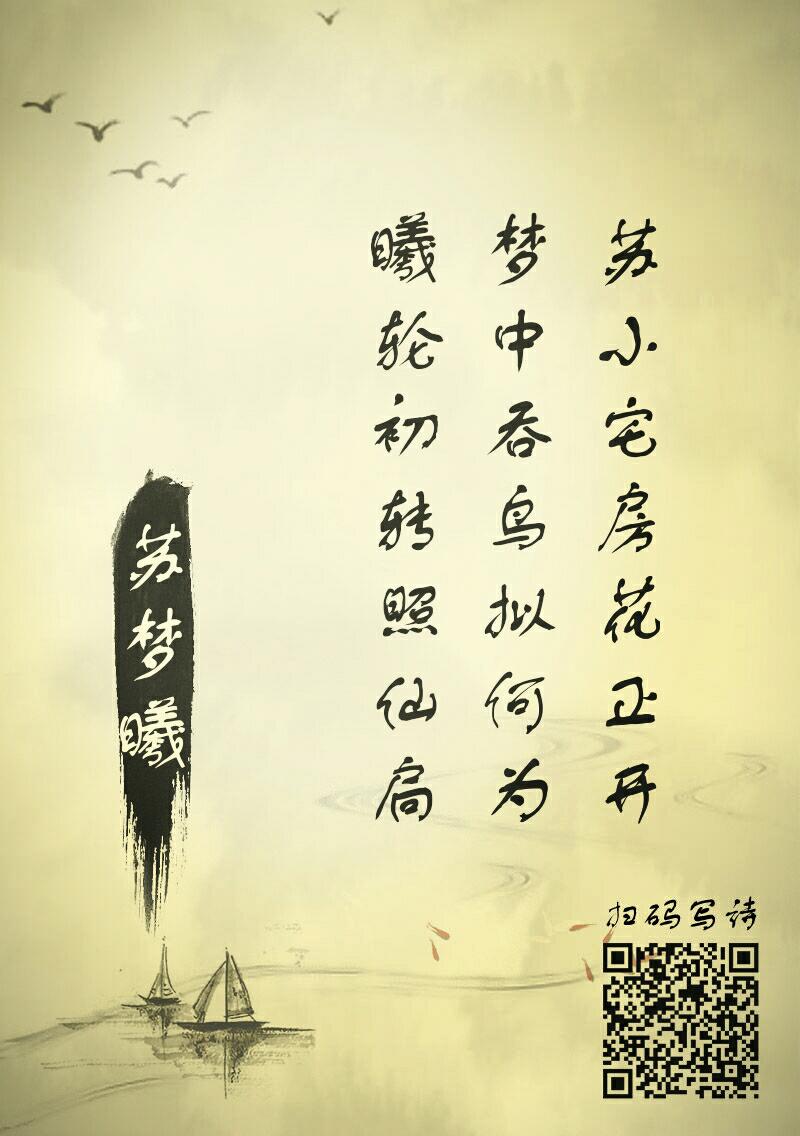 苏小宅房花正开
梦中吞鸟拟何为
曦轮初转照仙扃
苏梦曦
扫码写诗